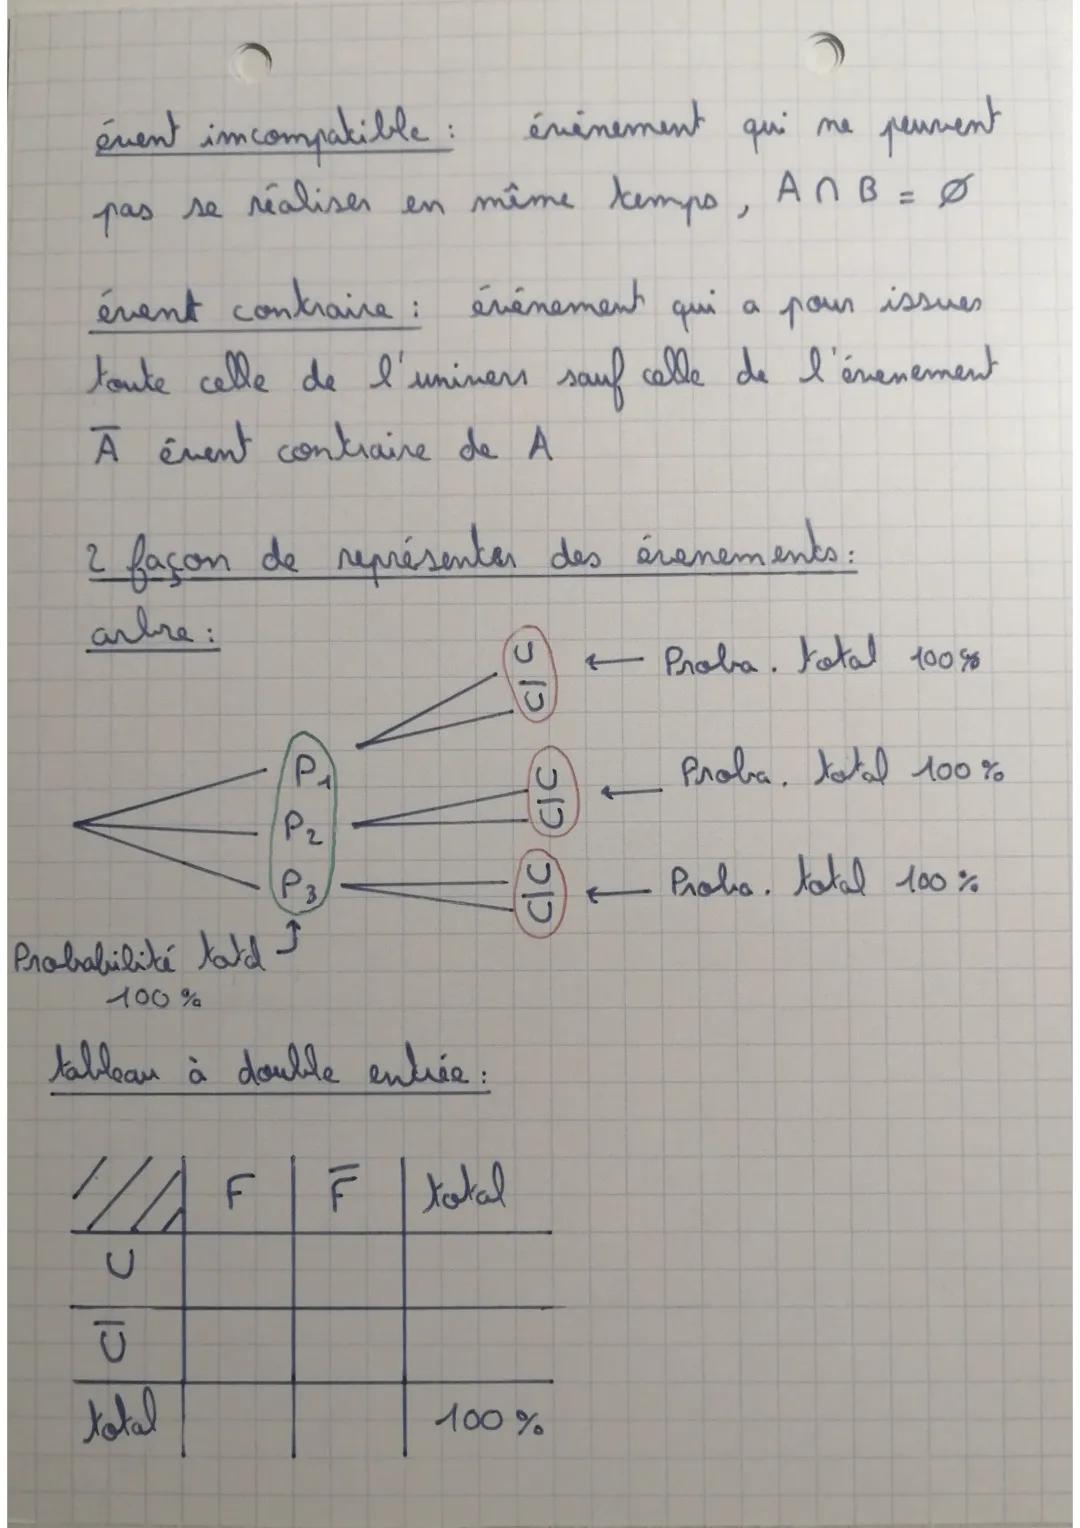 évent imcompatible : événement qui ne peuvent
pas se réaliser en même temps, A ∩ B = Ø
évent contraire : événement qui a pour issues
toute celle de l'univers sauf celle de l'évenement
A̅ évent contraire de A
2 façon de représenter des évenements :
arbre :
C ← Proba. total 100%
C̅
P1
C ← Proba. total 100%
C̅
P2
C ← Proba. total 100%
C̅
P3
Probabilité total
100%
tableau à double entrée :
F F̅ total
C
C̅
total 100%